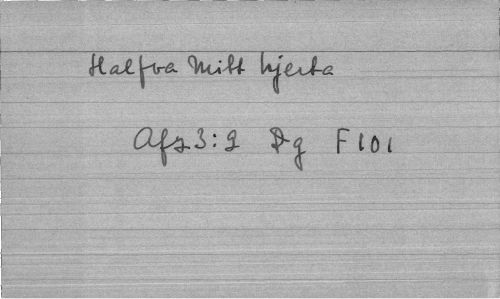 Halfva Mitt hjerta
Afz 3:9 Dg F 101